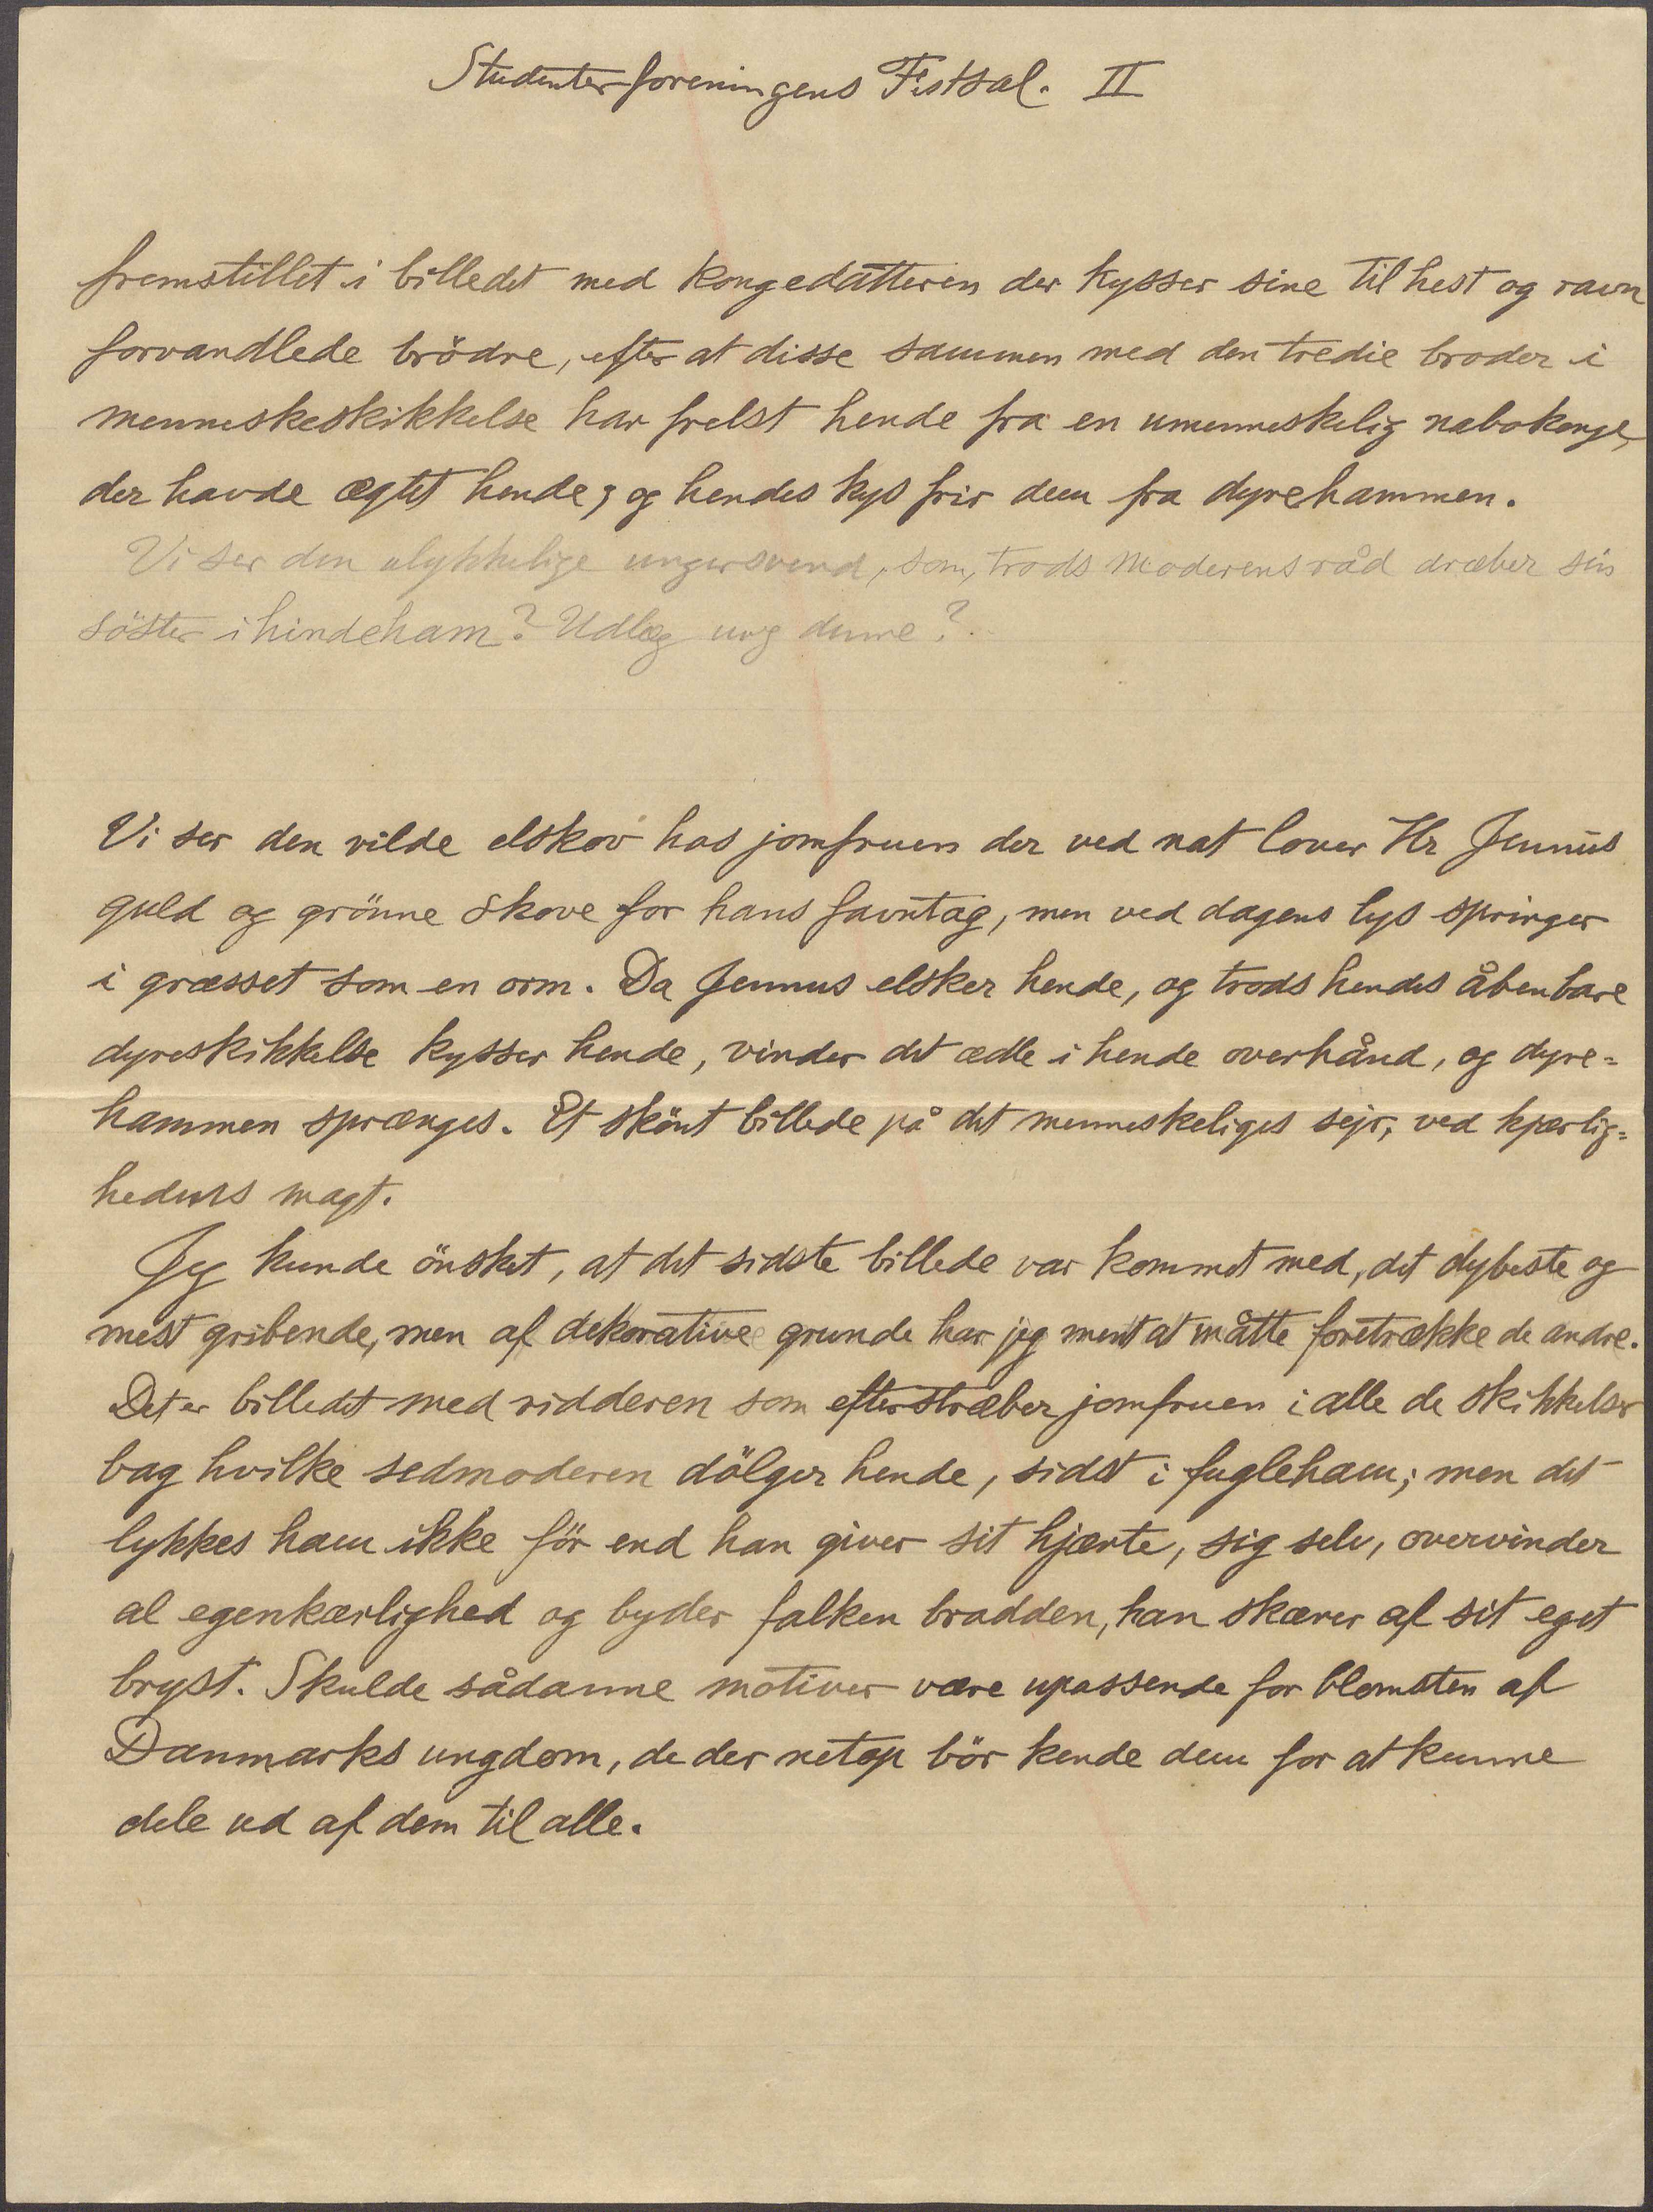 Studenterforeningens Festsal. II
fremstillet i billedet med kongedatteren der kysser sine til hest og ravn
forvandlede brödre, efter at disse sammen med den tredie broder i
menneskeskikkelse har frelst hende fra en umenneskelig nabokonge,
der havde ægtet hende; og hendes kys frir dem fra dyrehammen.
Vi ser den ulykkelige ungersvend, som, trods Moderens råd dræber sin
söster i hindeham? Udlæg
Vi ser den vilde elskov hos jomfruen der ved nat lover Hr Jennus
guld og grönne skove for hans favntag, men ved dagens lys springer
i græsset som en orm. Da Jennus elsker hende, og trods hendes åbenbare
dyreskikkelse kysser hende, vinder det ædle i hende overhånd, og dyre=
hammen sprænges. Et skönt billede på det menneskeliges sejr, ved kjærlig=
hedens magt.
Jeg kunde önsket, at det sidste billede var kommet med, det dybeste og
mest gribende, men af dekorative grunde har jeg ment at måtte foretrække de andre.
Det er billedet med ridderen som efterstræber jomfruen i alle de skikkelser
bag hvilke sedmoderen dölger hende, sidst i fugleham; men det
lykkes ham ikke för end han giver sit hjærte, sig selv, overvinder
al egenkærlighed og byder falken bradden, han skærer af sit eget
bryst. Skulde sådanne motiver være upassende for blomsten af
Danmarks ungdom, de der netop bör kende dem for at kunne
dele ud af dem til alle.